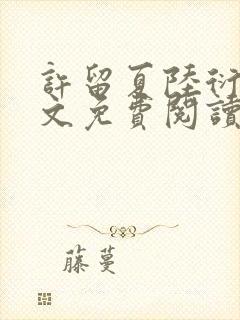 許留夏陸衍
文免費閱讀
藤蔓